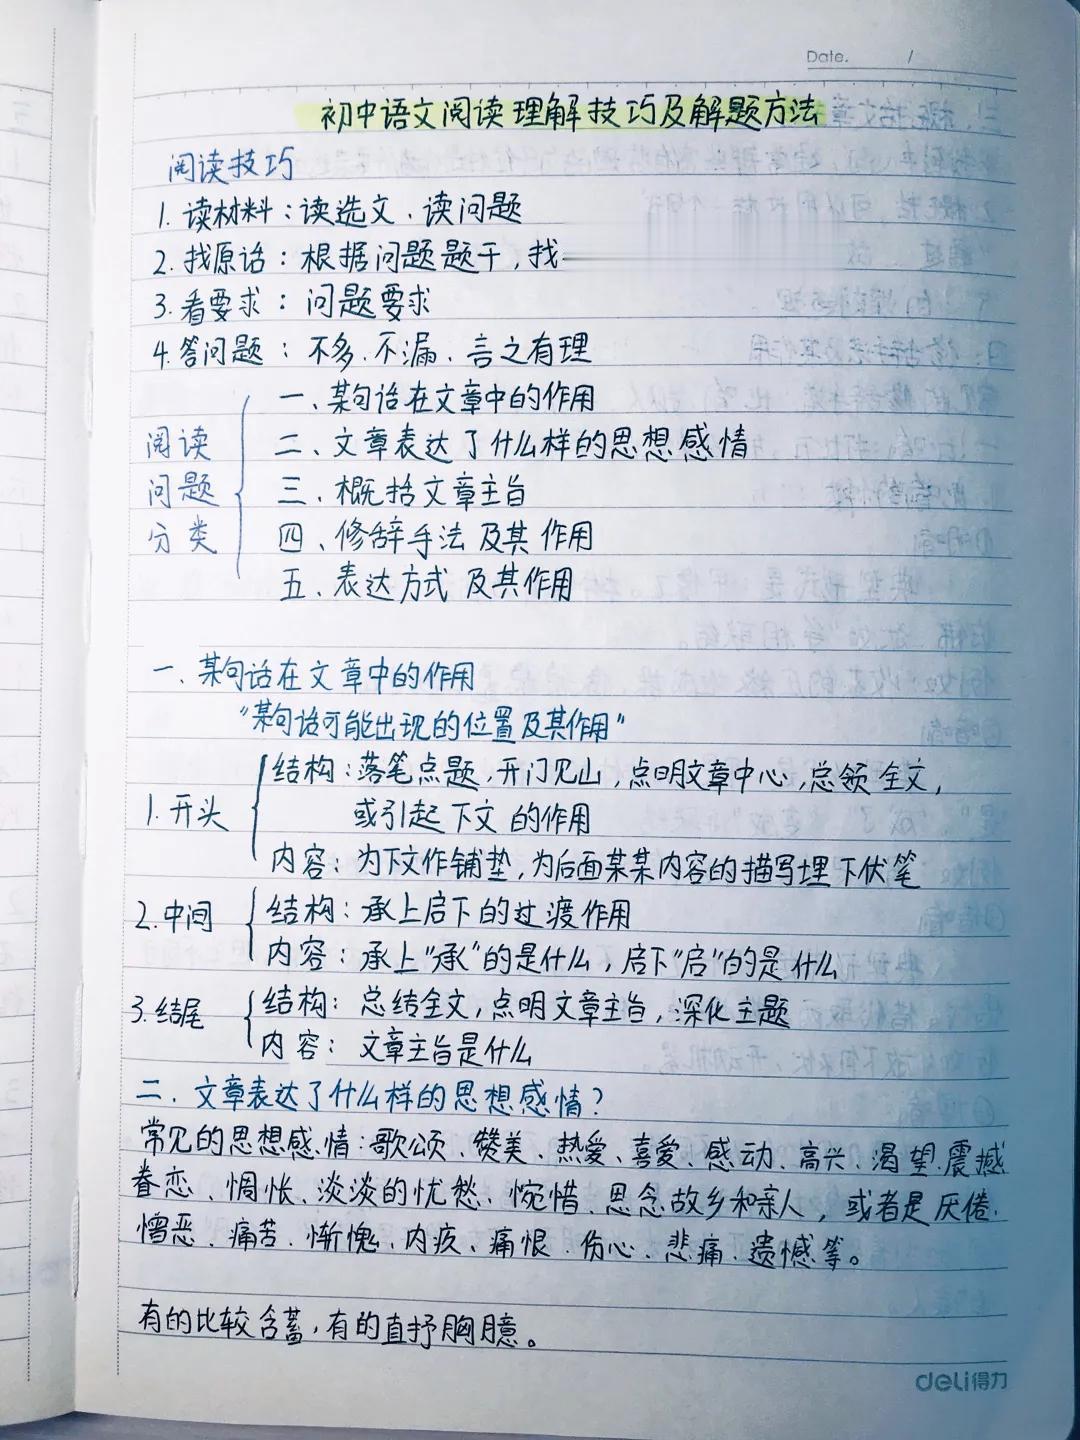 Date. /
初中语文阅读理解技巧及解题方法
阅读技巧
1. 读材料：读选文、读问题
2. 找原话：根据问题题干，找
3. 看要求：问题要求
4. 答问题：不多、不漏、言之有理
阅读问题分类
一、某句话在文章中的作用
二、文章表达了什么样的思想感情
三、概括文章主旨
四、修辞手法及其作用
五、表达方式及其作用
一、某句话在文章中的作用
“某句话可能出现的位置及其作用”
1. 开头
结构：落笔点题，开门见山，点明文章中心，总领全文，
或引起下文的作用
内容：为下文作铺垫，为后面某某内容的描写埋下伏笔
2. 中间
结构：承上启下的过渡作用
内容：承上“承”的是什么，启下“启”的是什么
3. 结尾
结构：总结全文，点明文章主旨，深化主题
内容：文章主旨是什么
二、文章表达了什么样的思想感情？
常见的思想感情：歌颂、赞美、热爱、喜爱、感动、高兴、渴望、震撼
眷恋、惆怅、淡淡的忧愁、惋惜、思念故乡和亲人，或者是厌倦、
憎恶、痛苦、惭愧、内疚、痛恨、伤心、悲痛、遗憾等。
有的比较含蓄，有的直抒胸臆。
deli得力